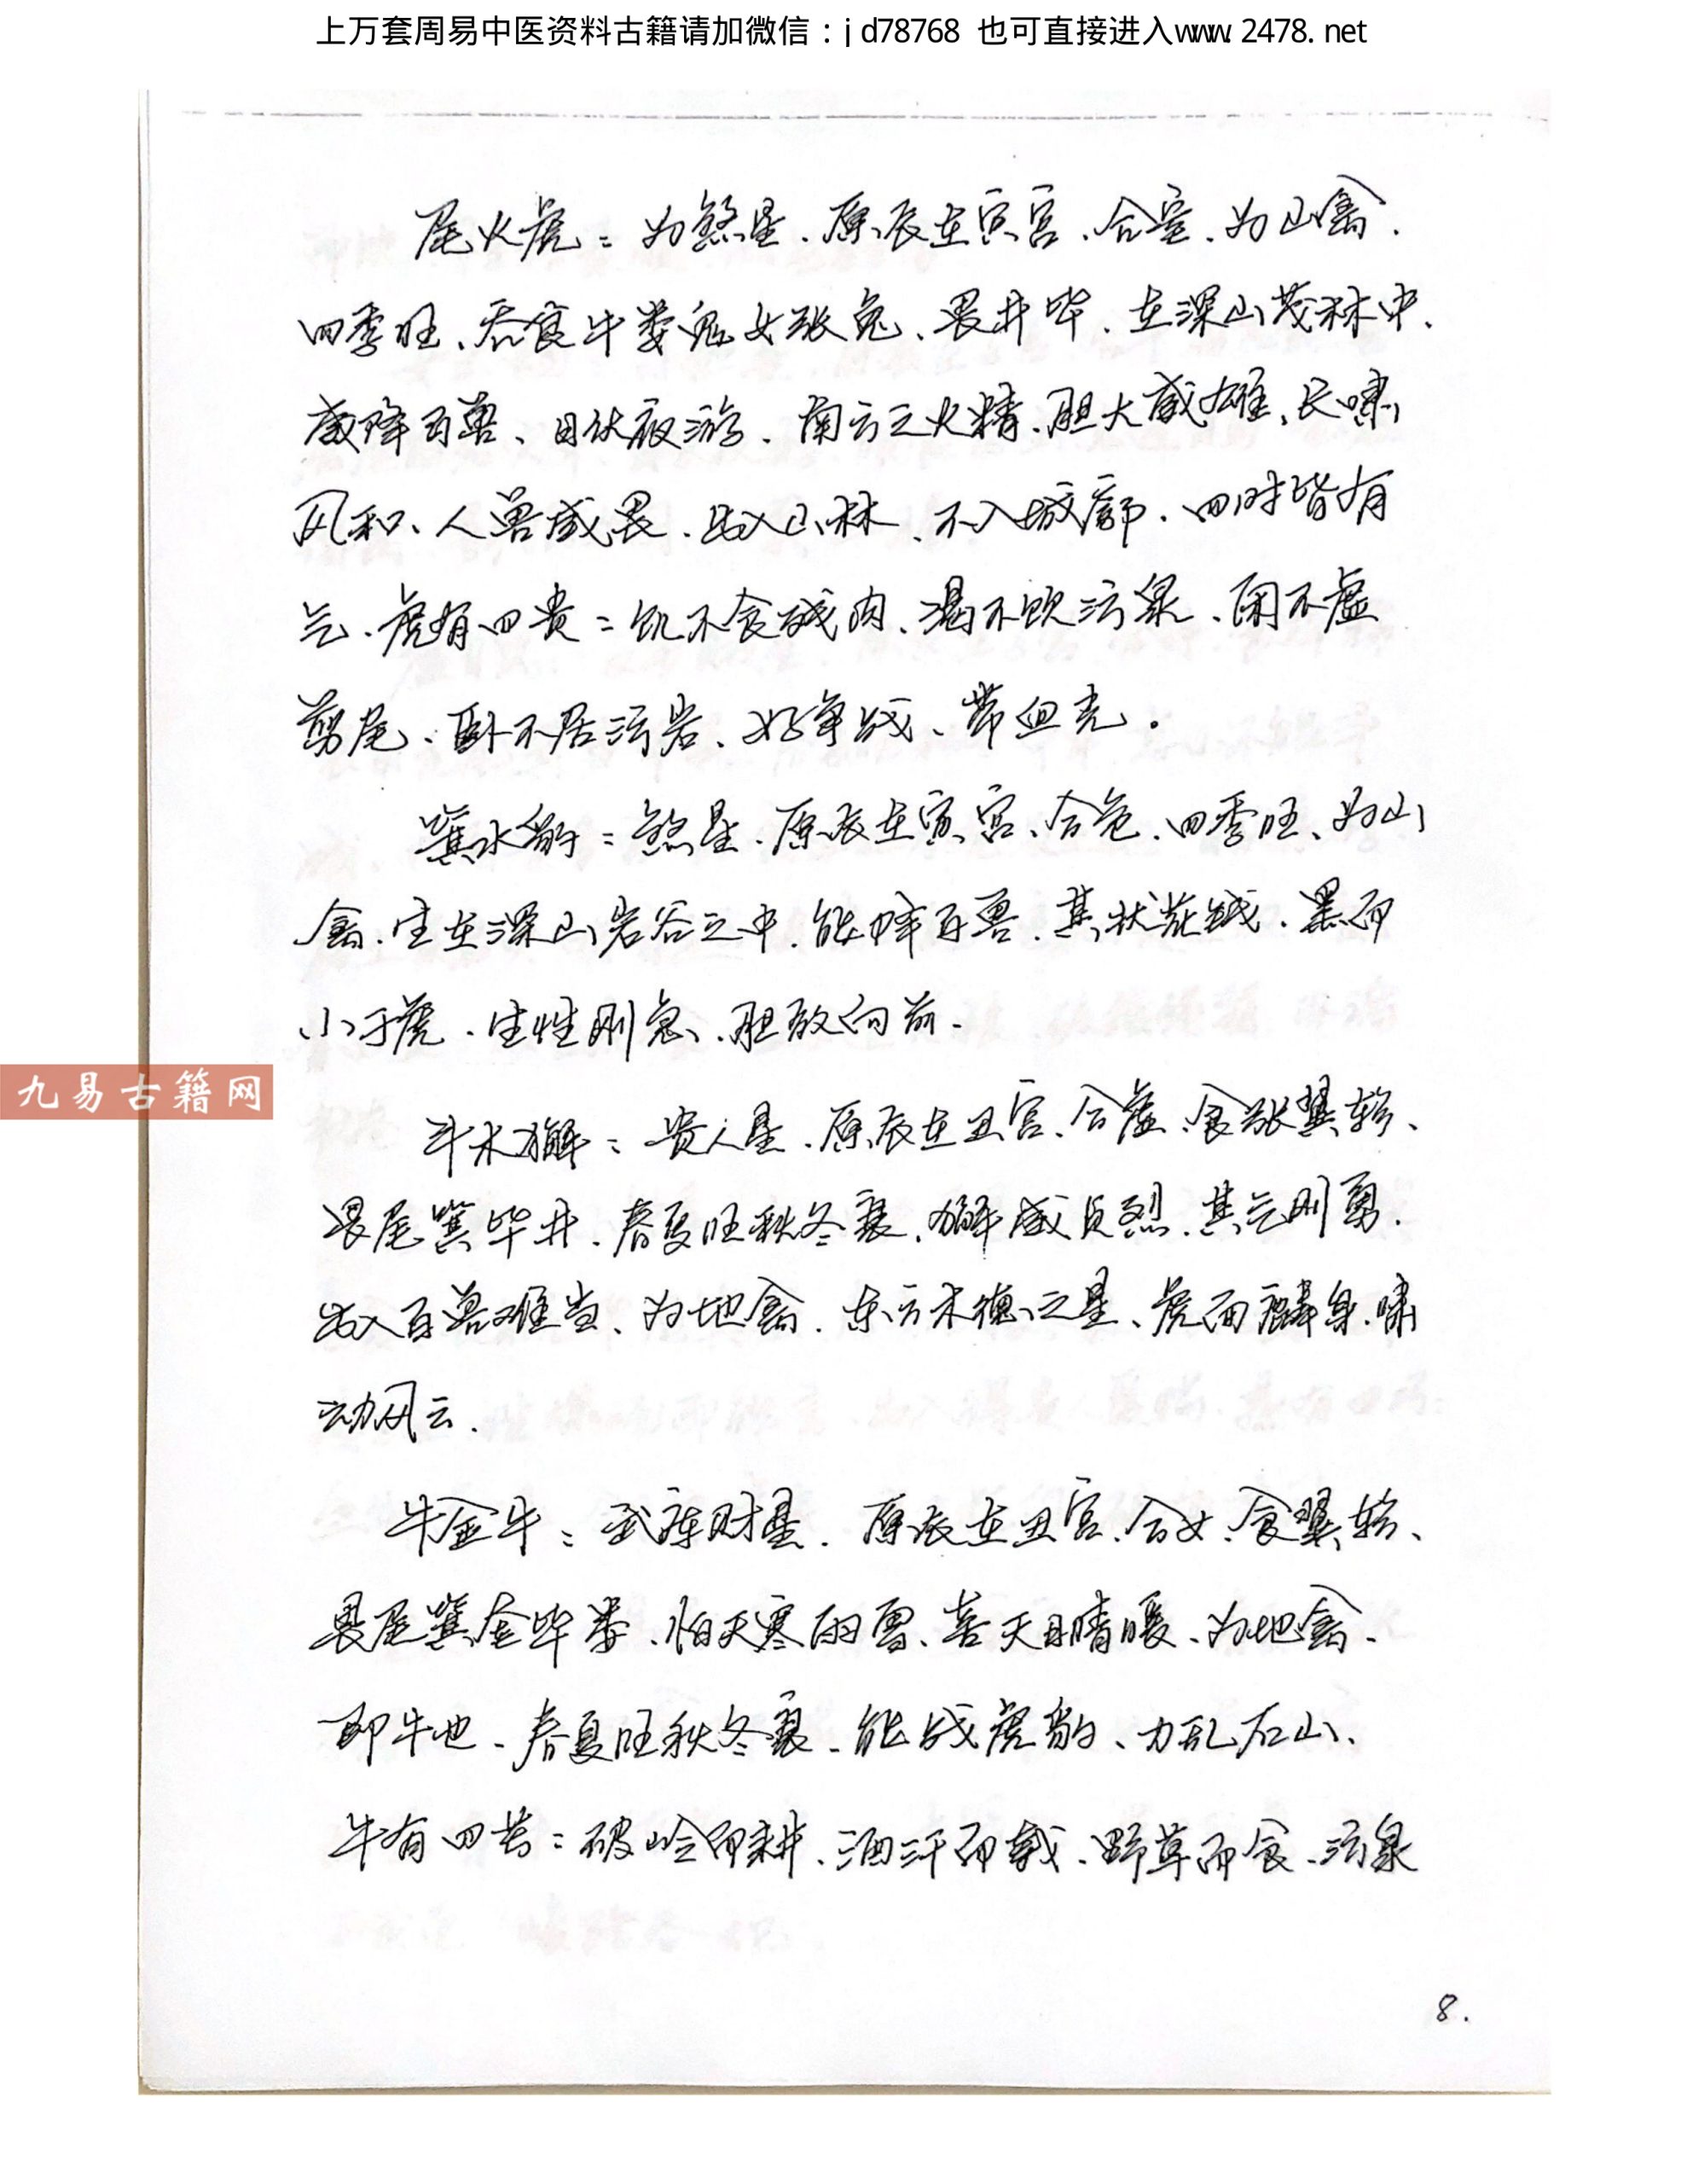 上万套周易中医资料古籍请加微信：jd78768 也可直接进入www.2478.net
尾火虎：为煞星、原辰在寅宫、合室、为山禽、
四季旺、吞食牛娄鬼女张兔、畏井毕、在深山茂林中、
威降百兽、日伏夜游、南方之火精、胆大威雄、长啸
风和、人兽咸畏、出入山林、不入城廓、四时皆有
气、虎有四贵：饥不食残肉、渴不饮污泉、闲不虚
剪尾、卧不居污岩、好争战、带血光。
箕水豹：煞星、原辰在寅宫、合危、四季旺、为山
禽、生在深山岩谷之中、能降百兽、其状花线、黑而
小于虎、生性刚急、胆敢向前、
斗木獬：贵人星、原辰在丑宫、合虚、食张翼轸、
畏尾箕毕井、春夏旺秋冬衰、獬威贞烈、其气刚勇、
出入百兽难当、为地禽、东方木德之星、虎面麟身、啸
动风云、
牛金牛：武库财星、原辰在丑宫、合女、食翼轸、
畏尾箕奎毕娄、怕天寒雨雪、喜天日晴暖、为地禽、
即牛也、春夏旺秋冬衰、能战虎豹、力乱石山、
牛有四苦：破岭而耕、洒汗而载、野草而食、污泉
8.
九易古籍网